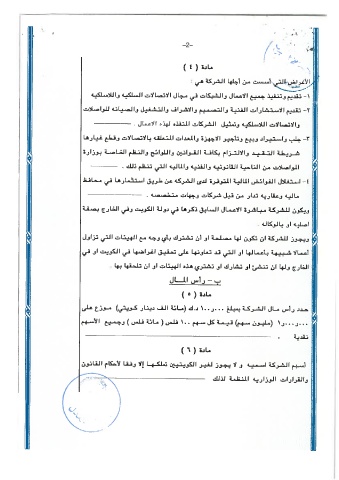 -2-
مادة ( ٤ )
الأغراض التي أسست من أجلها الشركة هي :
١- تقديم وتنفيذ جميع الاعمال والشبكات في مجال الاتصالات السلكيه واللاسلكيه
٢- تقديم الاستشارات الفنية والتصميم والاشراف والتشغيل والصيانه للواصلات
والاتصالات اللاسلكيه وتمثيل الشركات المنفذه لهذه الاعمال .
٣- جلب واستيراد وبيع وتأجير الاجهزة والمعدات المتعلقه بالاتصالات وقطع غيارها
شريطة التقيد والالتزام بكافة القوانين واللوائح والنظم الخاصة بوزارة
المواصلات من الناحية القانونيه والفنيه والماليه التي تنظم ذلك .
٤- استغلال الفوائض المالية المتوفرة لدى الشركه عن طريق استثمارها في محافظ
ماليه وعقاريه تدار من قبل شركات وجهات متخصصه .
ويكون للشركة مباشرة الاعمال السابق ذكرها في دولة الكويت وفي الخارج بصفة
اصليه او بالوكاله .
ويجوز للشركة ان تكون لها مصلحة او ان تشترك بأي وجه مع الهيئات التي تزاول
أعمالا شبيهة بأعمالها أو التي قد تعاونها على تحقيق اغراضها في الكويت او في
الخارج ولها ان تنشئ او تشارك او تشتري هذه الهيئات او ان تلحقها بها .
ب - رأس المال
مادة ( ٥ )
حدد رأس مال الشركة بمبلغ ١٠٠,٠٠٠ د.ك (مائة الف دينار كويتي) موزع على
١,٠٠٠,٠٠٠ (مليون سهم) قيمة كل سهم ١٠٠ فلس ( مائة فلس ) وجميع الأسهم
نقدية .
مادة ( ٦ )
أسهم الشركة اسميه و لا يجوز لغير الكويتيين تملكها إلا وفقا لأحكام القانون
والقرارات الوزاريه المنظمة لذلك